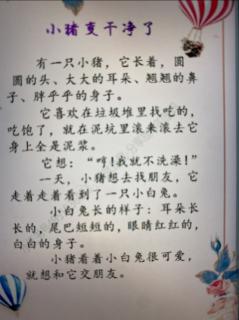 小猪变干净了
有一只小猪，它长着，圆
圆的头、大大的耳朵、翘翘的鼻
子、胖乎乎的身子。
它喜欢在垃圾堆里找吃的，
吃饱了，就在泥坑里滚来滚去它
身上全是泥浆。
它想：“哼！我就不洗澡！”
一天，小猪想去找朋友，它
走着走着看到了一只小白兔。
小白兔长的样子：耳朵长
长的，尾巴短短的，眼睛红红的，
白白的身子。
小猪看着小白兔很可爱，
就想和它交朋友。